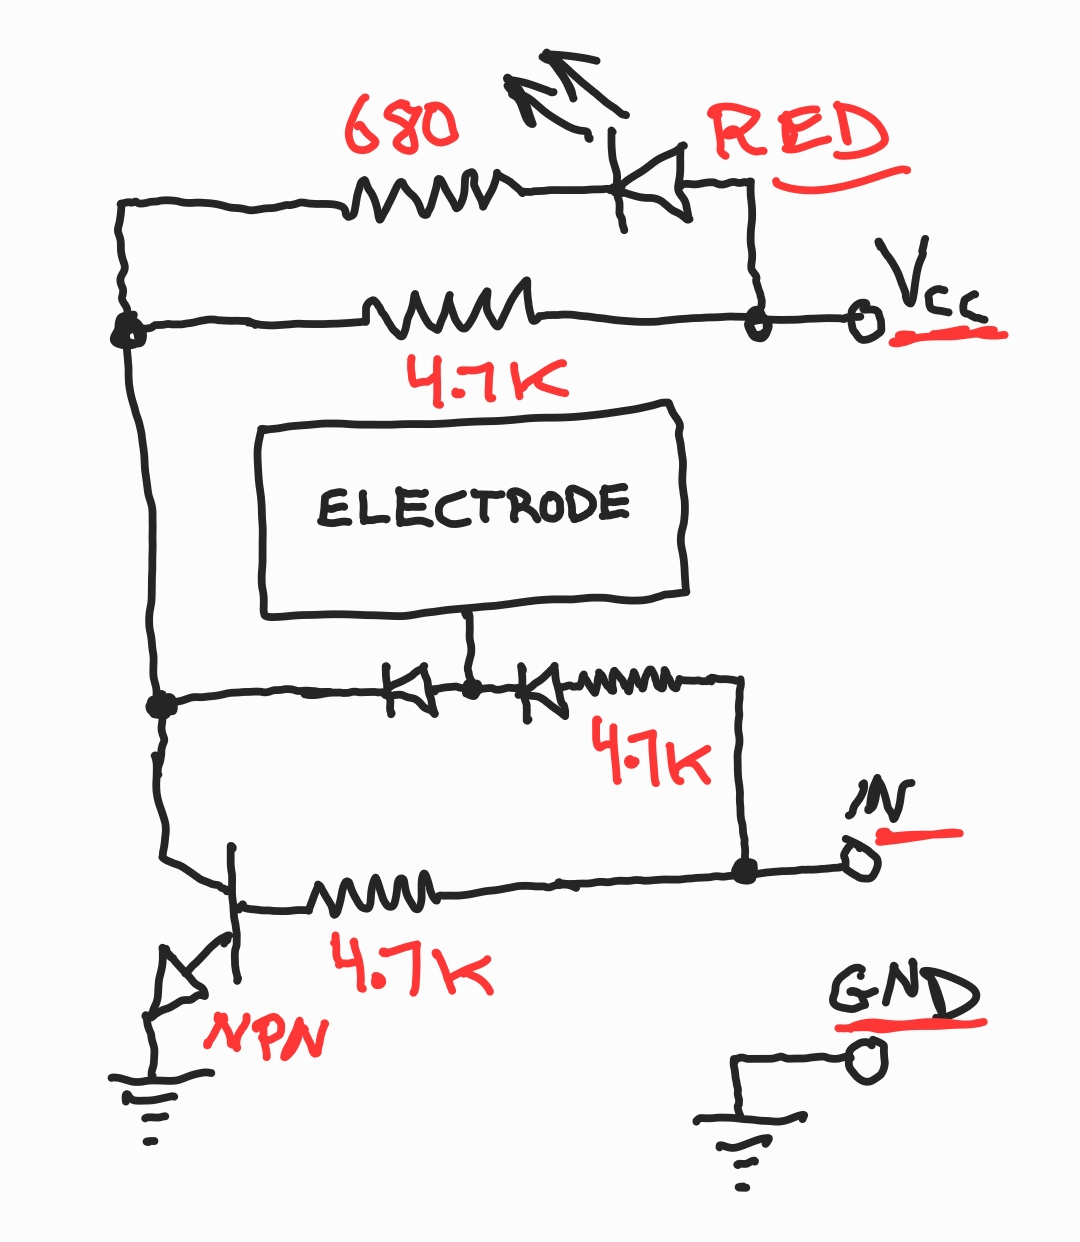 680
RED
Vcc
4.7K
ELECTRODE
4.7K
IN
4.7K
GND
NPN